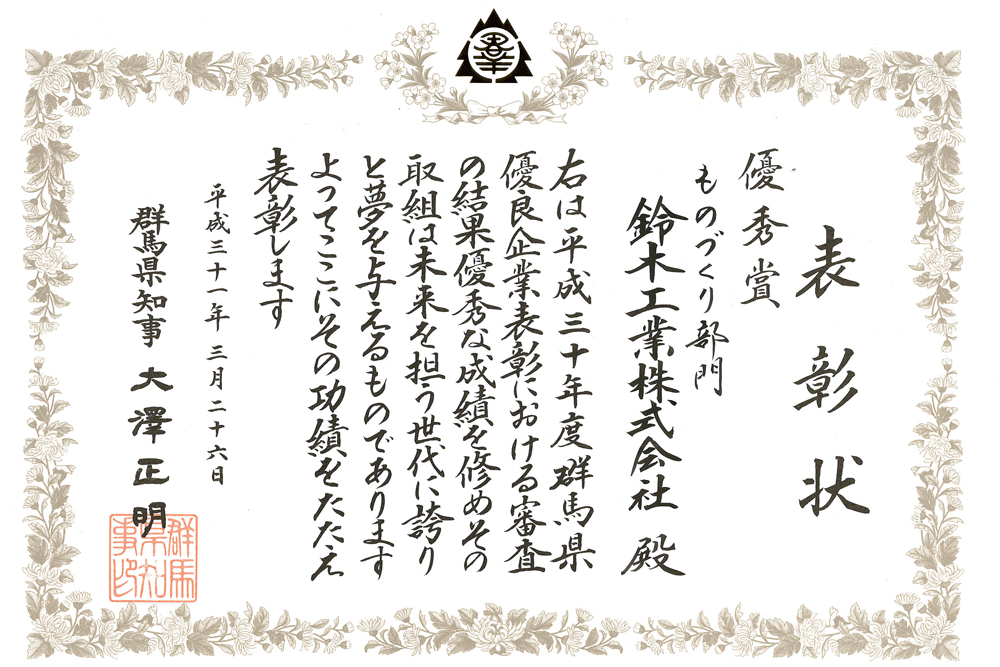 表彰状
優秀賞
ものづくり部門
鈴木工業株式会社 殿
右は平成三十年度群馬県
優良企業表彰における審査
の結果優秀な成績を修めその
取組は未来を担う世代に誇り
と夢を与えるものであります
よってここにその功績をたたえ
表彰します
平成三十一年三月二十六日
群馬県知事 大澤正明
群馬
県知
事印